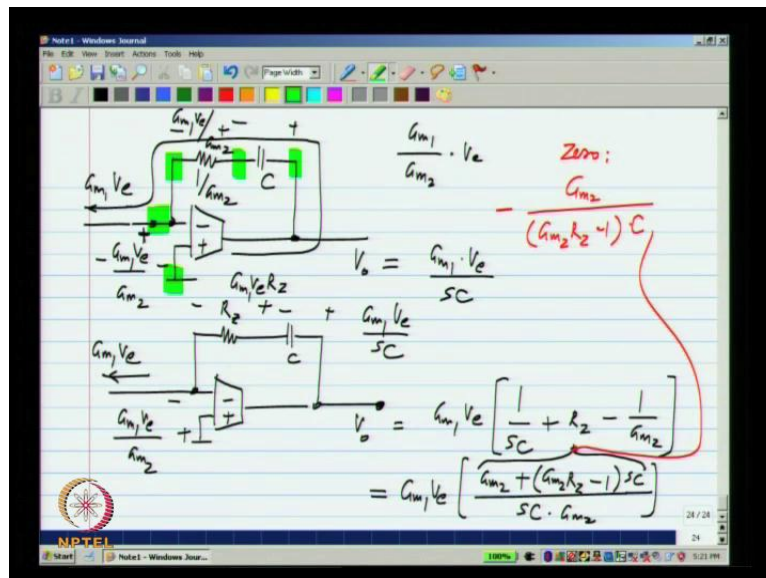 Note1 - Windows Journal
File Edit View Insert Actions Tools Help
Page Width
Gm1Ve/Gm2
- + - +
1/Gm2
C
Gm1Ve
+
- Gm1Ve/Gm2 -
Vo = Gm1·Ve/sC
Gm1/Gm2 · Ve
Zero:
- Gm2/((Gm2Rz-1)C)
Gm1VeRz
- Rz + - +
Gm1Ve/sC
C
Gm1Ve
-
Gm1Ve/Gm2 +
Vo = Gm1Ve [1/sC + Rz - 1/Gm2]
= Gm1Ve [(Gm2+(Gm2Rz-1)sC)/(sC·Gm2)]
NPTEL
24 / 24
24
Start
Note1 - Windows Jour...
100%
5:21 PM